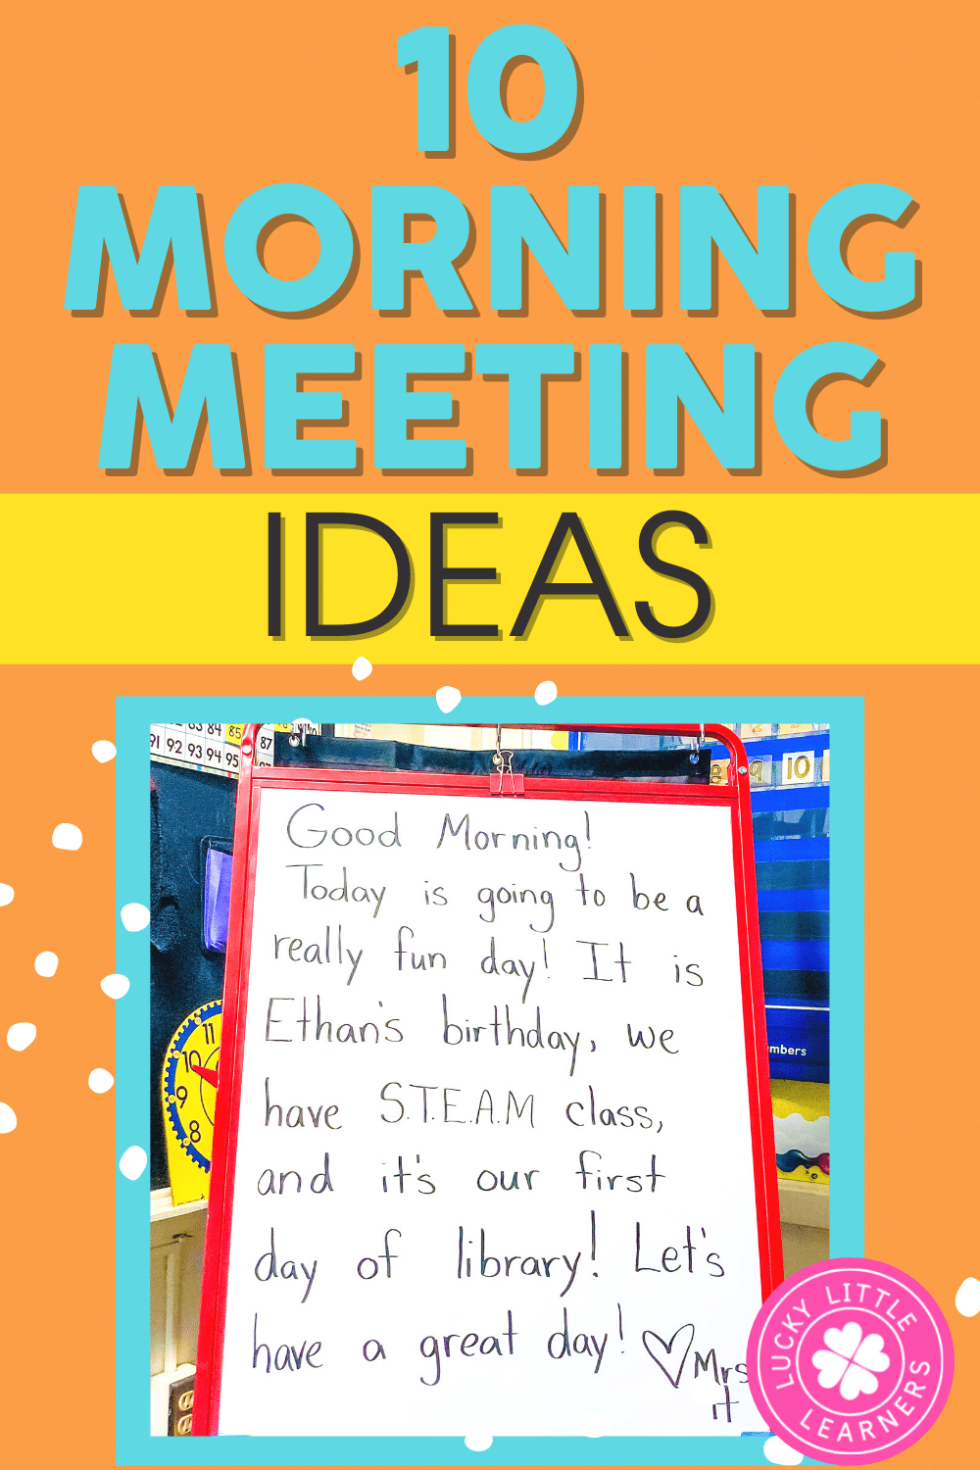 10
MORNING
MEETING
IDEAS
83 84 85
87
91 92 93 94 95
9 10
Good Morning!
Today is going to be a
really fun day! It is
Ethan's birthday, we
have S.T.E.A.M class,
and it's our first
day of library! Let's
have a great day! ♡ Mrs
11
10
9
8
LUCKY LITTLE
LEARNERS